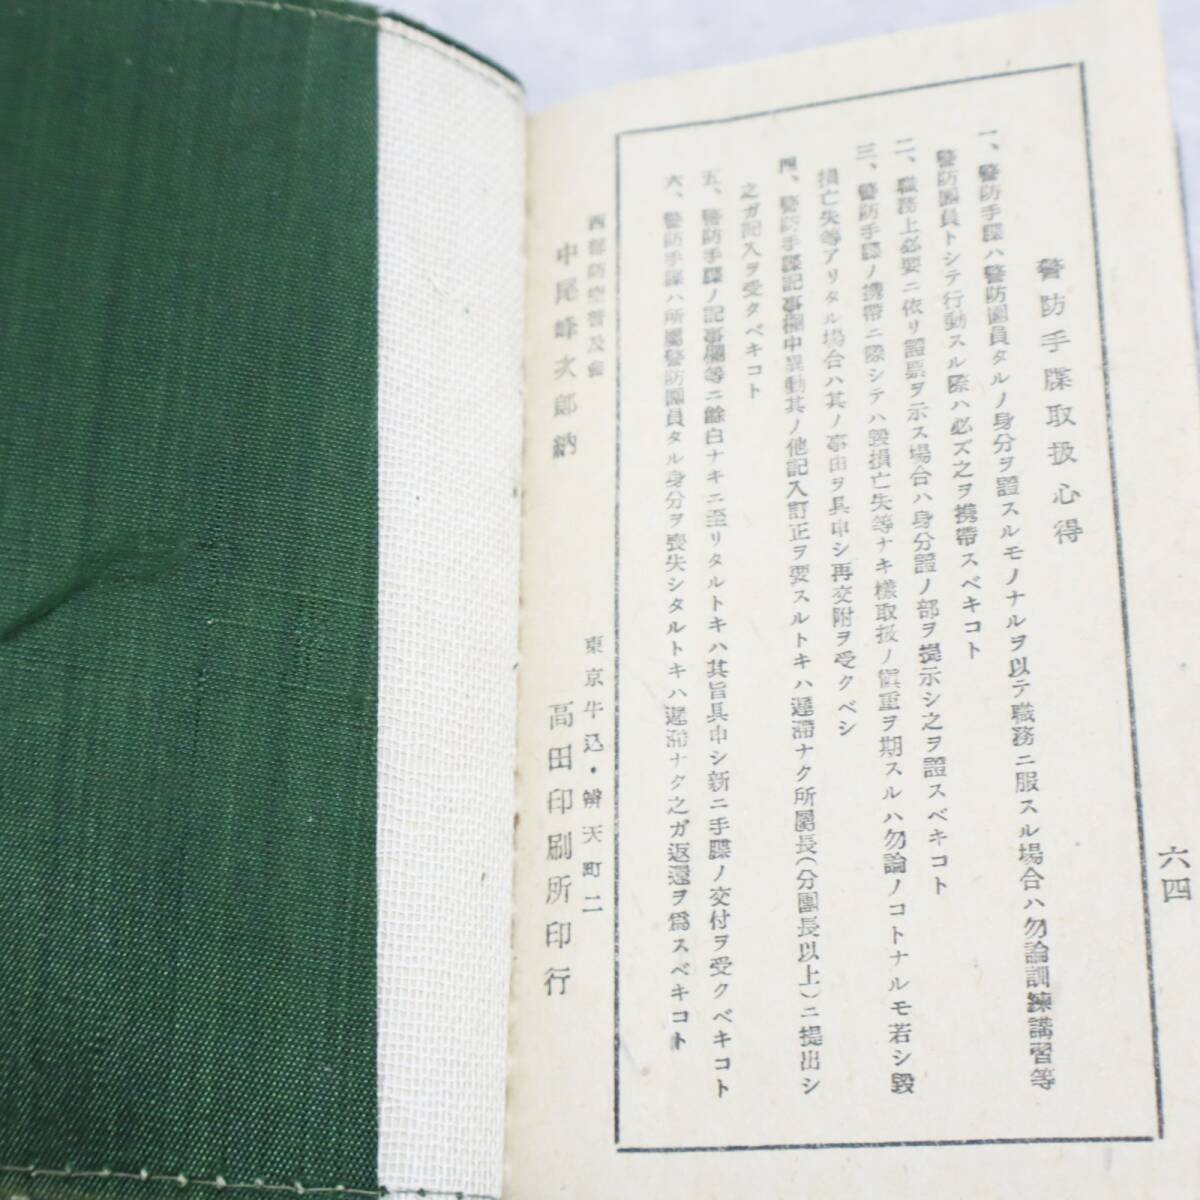 六四
警防手牒取扱心得
一、警防手牒ハ警防團員タルノ身分ヲ證スルモノナルヲ以テ職務ニ服スル場合ハ勿論訓練講習等
警防團員トシテ行動スル際ハ必ズ之ヲ携帶スベキコト
二、職務上必要ニ依リ證票ヲ示ス場合ハ身分證ノ部ヲ提示シ之ヲ證スベキコト
三、警防手牒ノ携帶ニ際シテハ毀損亡失等ナキ樣取扱ノ愼重ヲ期スルハ勿論ノコトナルモ若シ毀
損亡失等アリタル場合ハ其ノ事由ヲ具申シ再交附ヲ受クベシ
四、警防手牒記事欄中異動其ノ他記入訂正ヲ要スルトキハ遲滯ナク所屬長(分團長以上)ニ提出シ
之ガ記入ヲ受クベキコト
五、警防手牒ノ記事欄等ニ餘白ナキニ至リタルトキハ其旨具申シ新ニ手牒ノ交付ヲ受クベキコト
六、警防手牒ハ所屬警防團員タル身分ヲ喪失シタルトキハ遲滯ナク之ガ返還ヲ爲スベキコト
西部防空普及會
中尾峰次郎納
東京牛込・辨天町二
高田印刷所印行